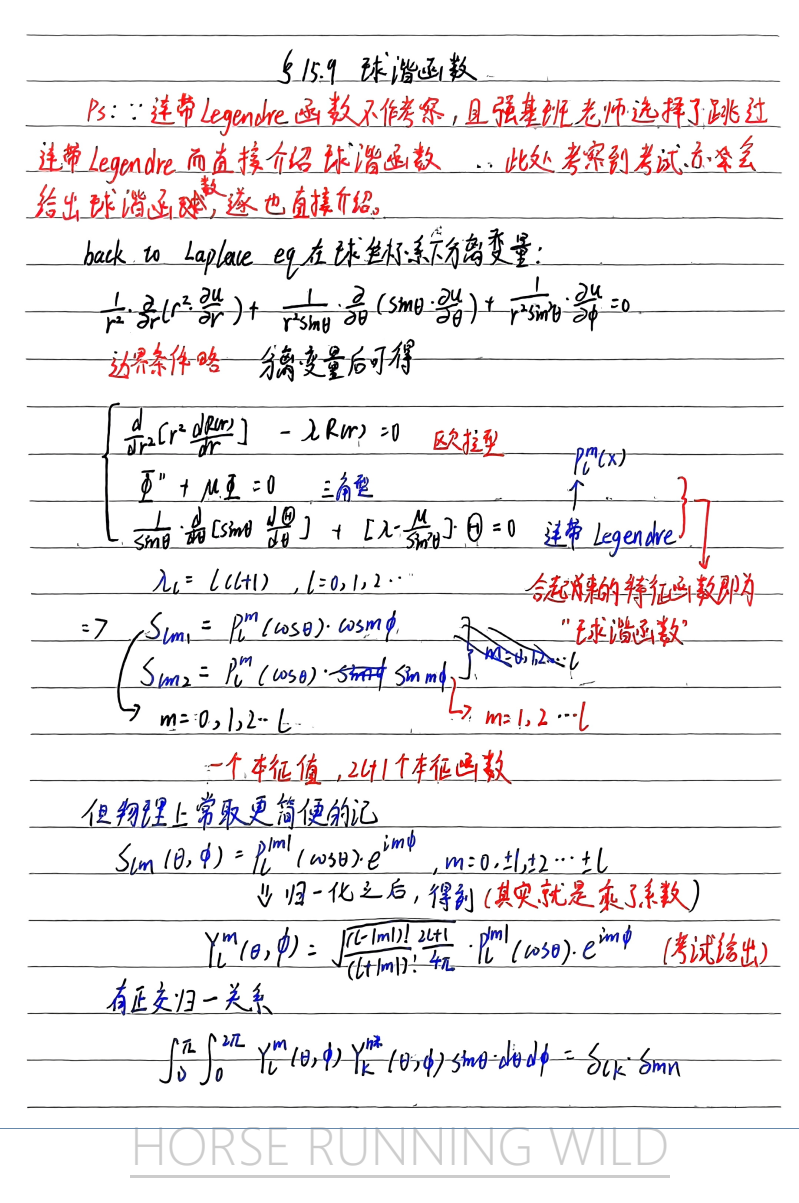 §15.9 球谐函数
Ps: ∵ 连带Legendre函数不作考察,且强基班老师选择了跳过
连带Legendre而直接介绍球谐函数 ∴ 此处考察到考试亦会
给出球谐函数,遂也直接介绍。
back to Laplace eq 在球坐标系下分离变量:
1/r² · ∂/∂r(r²·∂u/∂r) + 1/(r²sinθ) · ∂/∂θ(sinθ·∂u/∂θ) + 1/(r²sin²θ) · ∂u/∂ϕ = 0
边界条件略 分离变量后可得
d/dr²[r² dR(r)/dr] - λR(r) = 0 欧拉型
Pₗᵐ(x)
Φ'' + μΦ = 0 三角型
1/sinθ · d/dθ[sinθ dΘ/dθ] + [λ - μ/sin²θ]·Θ = 0 连带 Legendre
λₗ = l(l+1) , l=0,1,2··· 合起来的特征函数即为
=> Sₗₘ₁ = Pₗᵐ(cosθ)·cosmϕ "球谐函数"
Sₗₘ₂ = Pₗᵐ(cosθ)· sin mϕ m=0,1,2···l
m=0,1,2··l m=1,2···l
一个本征值,2l+1个本征函数
但物理上常取更简便的记
Sₗₘ(θ,ϕ) = Pₗ^|m|(cosθ)·e^{imϕ} , m=0,±1,±2···±l
⇓ 归一化之后,得到(其实就是乘了系数)
Yₗᵐ(θ,ϕ) = √((l-|m|)!/(l+|m|)! · (2l+1)/4π) · Pₗ^|m|(cosθ)·e^{imϕ} (考试给出)
有正交归一关系
∫₀^π ∫₀^2π Yₗᵐ(θ,ϕ) Yₖⁿ*(θ,ϕ) sinθ·dθdϕ = δlk·δmn
HORSE RUNNING WILD